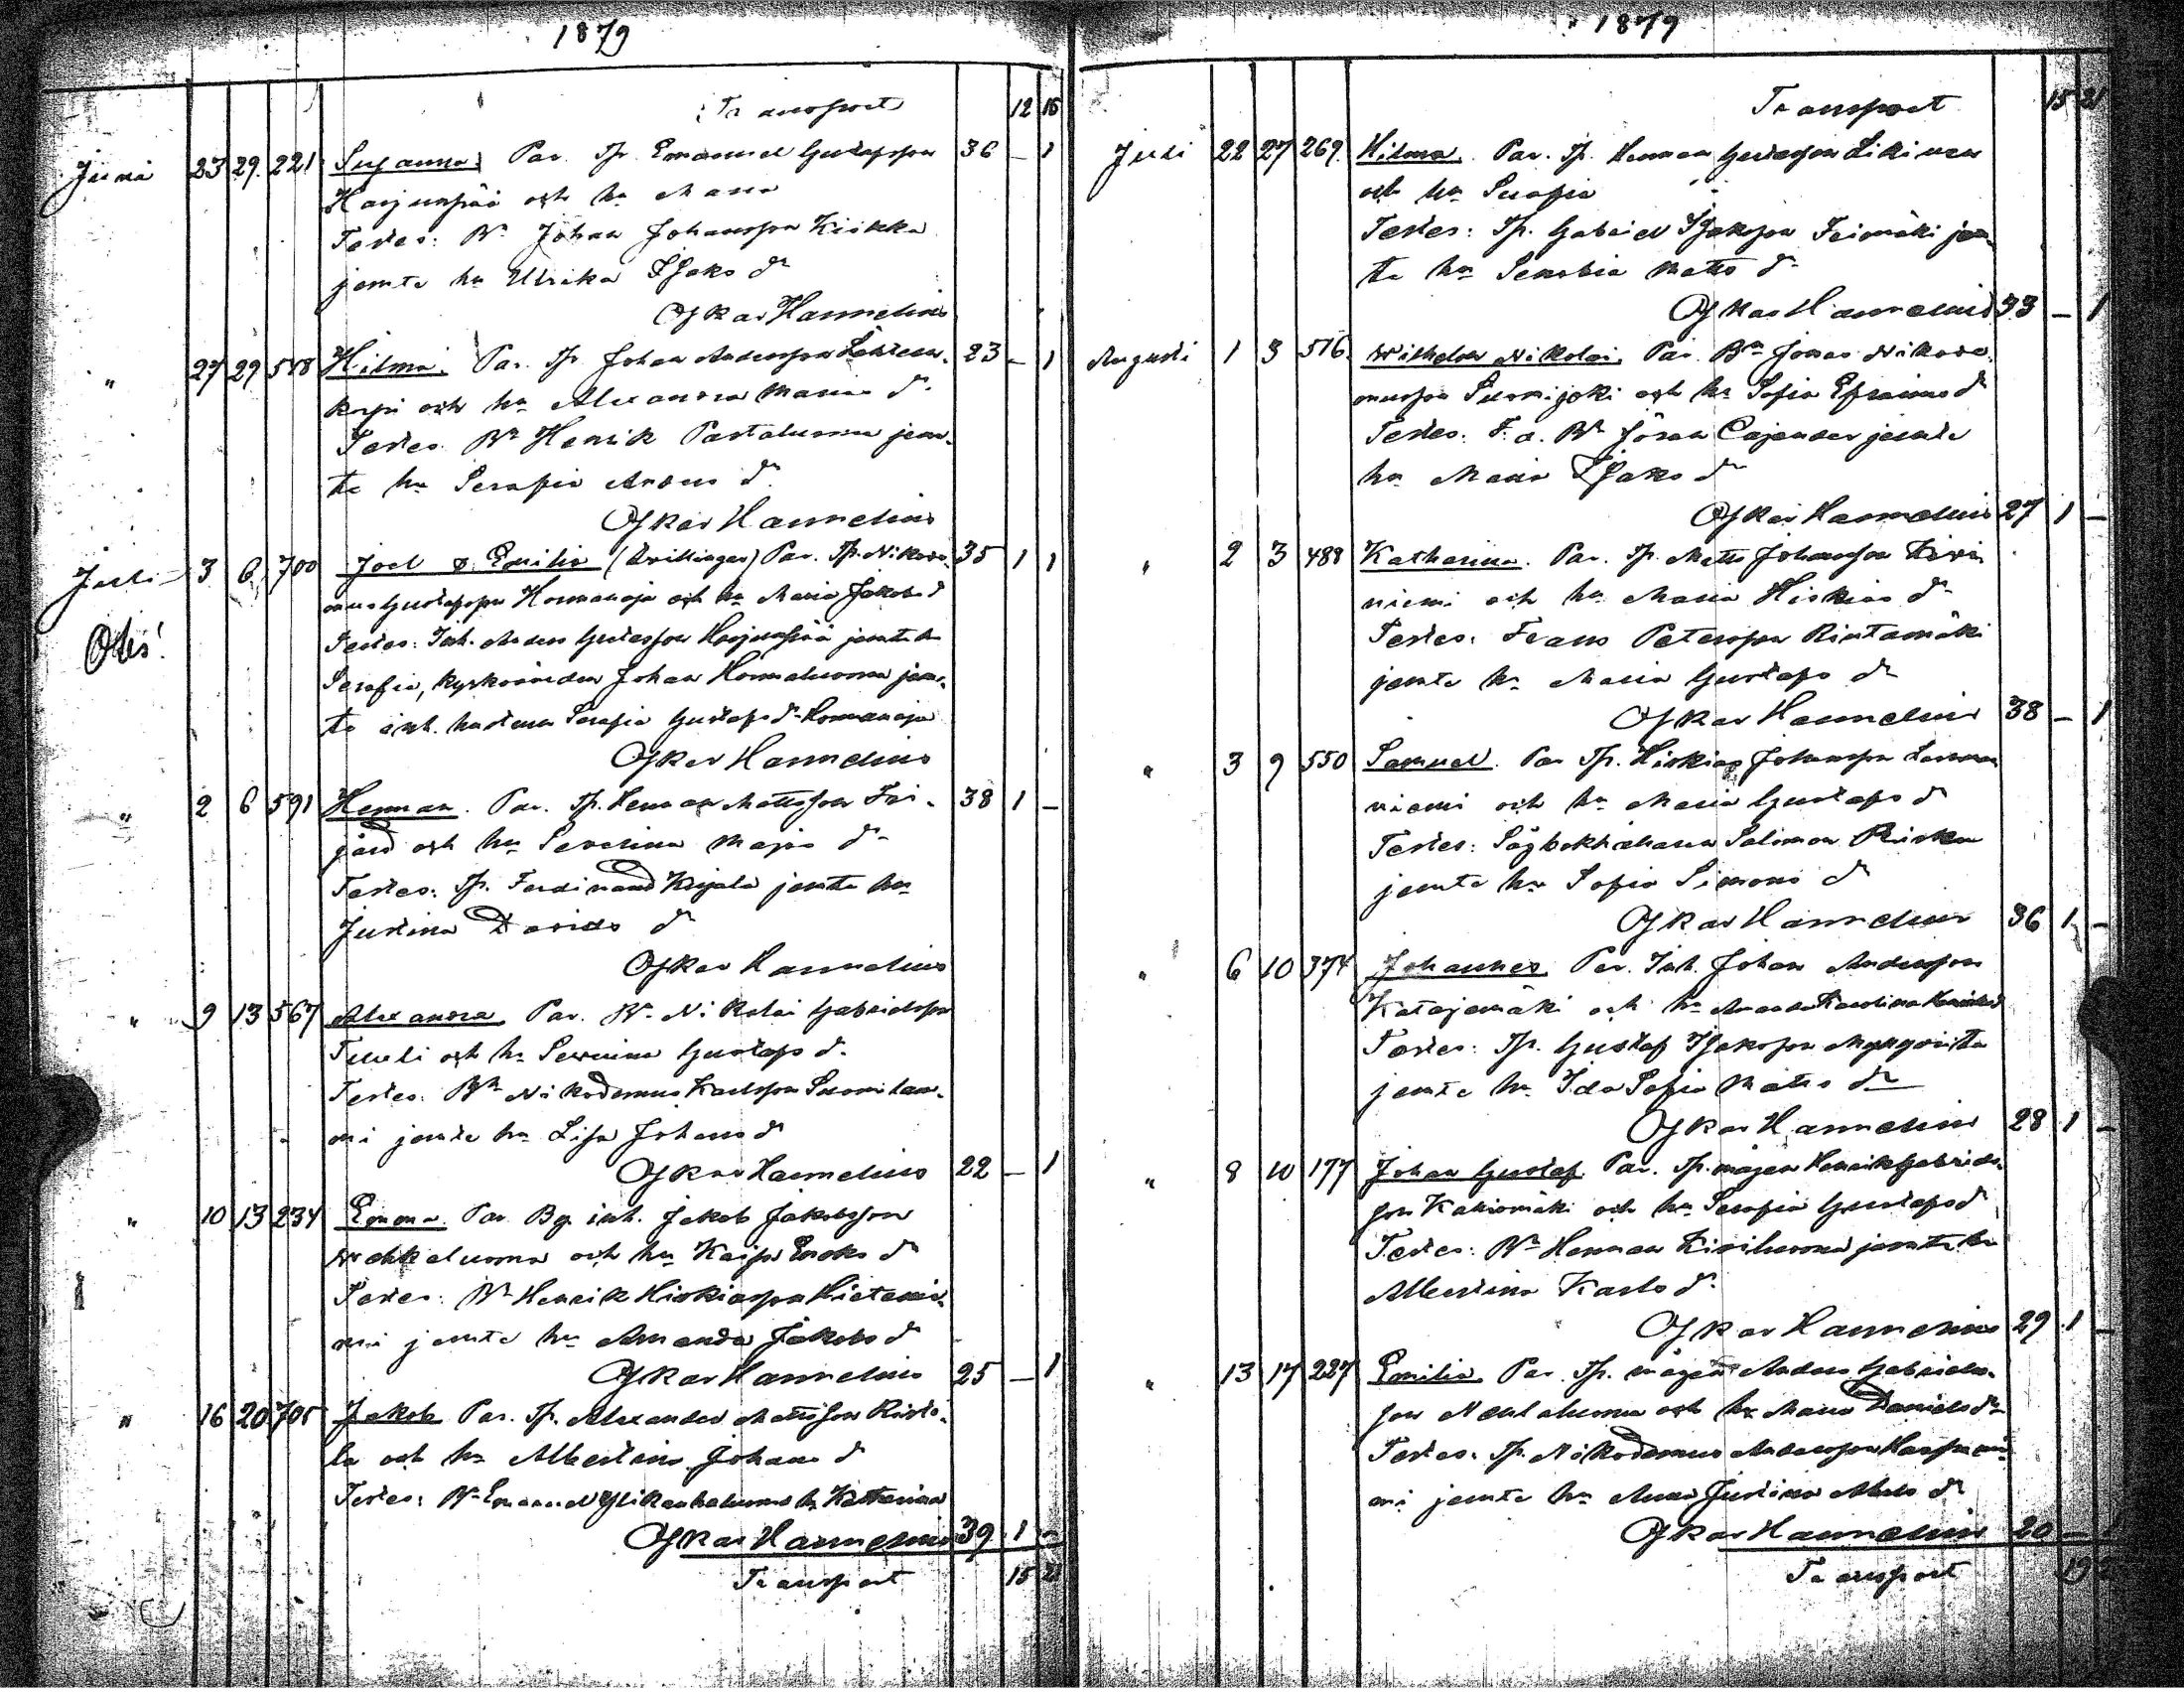 1879
Transport 12 16
Juni 23 29. 221 Susanna. Par. Tp. Emanuel Gustafsson 36 – 1
Harjunpää och hu Maria
Testes: Bn Johan Johansson Kiikka
jemte hu Ulrika Isaks dr
Oskar Hannelius
" 27 29 548 Hilma. Par. Tp. Johan Andersson 23 – 1
och hu Alexandra Marias dr
Testes. Bn Henrik Partaluoma jem-
te hu Serafia Anders dr
Oskar Hannelius
Juli 3 6 700 Joel & Emilia (tvillingar) Par. Tp. Nikode- 35 1 1
mus Gustafsson Hormanoja och hu Maria Jakobs d
Obs! Testes: Inh. Anders Gustafsson Harjunpää jemte hu
Serafia, kyrkovärden Johan Hormaluoma jem-
te inh. hustrun Serafia Gustafs dr Hormanoja
Oskar Hannelius
" 2 6 591 Herman. Par. Tp. Herman Mattsson Foi- 38 1 –
järd och hu Severina Majas dr
Testes: Tp. Ferdinand Knjala jemte hu
Justina Davids dr
Oskar Hannelius
" 9 13 567 Alexandra. Par. Bn Nikolai Gabrielsson
Tuuli och hu Serviina Gustafs d.
Testes: Bn Nikodemus Karlsson Suomilam-
mi jemte hu Lisa Johans d
Oskar Hannelius 22 – 1
" 10 13 234 Emma. Par. Bg. inh. Jakob Jakobsson
Wehkaluoma och hu Kaisa Enoks d
Testes: Bn Henrik Hiskiasson Hietanie-
mi jemte hu Amanda Jakobs d
Oskar Hannelius 25 – 1
" 16 20 705 Jakob. Par. Tp. Alexander Mattsson Risto-
la och hu Albertina Johans d
Testes: Bn Emanuel Ylikauhaluoma hu Katharina
Oskar Hannelius 39 1 –
Transport 15 21
1879
Transport 15 21
Juli 22 27 269. Hilma. Par. Tp. Herman Gustafsson Likiman
och hu Serafia
Testes: Tp. Gabriel Isaksson Feimäki jem-
te hu Senobia Matts dr
Oskar Hannelius 33 – 1
Augusti 1 3 516. Wilhelm Nikolai. Par. Bn Jonas Nikode-
musson Suomijoki och hu Sofia Efraims d
Testes: F. d. Bn Jöran Cajander jemte
hu Maria Isaks d
Oskar Hannelius 27 1 –
" 2 3 488 Katharina. Par. Tp. Matts Johansson Kivi-
niemi och hu Maria Hiskias dr
Testes: Frans Petersson Rintamäki
jemte hu Maria Gustafs dr
Oskar Hannelius 38 – 1
" 3 9 550 Samuel. Par Tp. Hiskias Johansson
niemi och hu Maria Gustafs d
Testes: Sågbokhållaren Salomon Risku
jemte hu Sofia Simons d
Oskar Hannelius 36 1 –
" 6 10 374 Johannes. Par. Inh. Johan Andersson
Katajamäki och hu Amanda Karolina Henriksd
Testes: Tp. Gustaf Isaksson
jemte hu Ida Sofia Matts dr
Oskar Hannelius 28 1 –
" 8 10 177 Johan Gustaf. Par. Tp. mågen Henrik Gabriels-
son Kakiomäki och hu Serafia Gustafs d
Testes: Bn Herman Kiviluoma jemte hu
Albertina Karls d.
Oskar Hannelius 29 1 –
" 13 17 227 Emilia. Par. Tp. mågen Anders Gabriels-
son och hu Maria Daniels dr
Testes: Tp. Nikodemus Andersson
mi jemte hu Anna Justina Abels d
Oskar Hannelius 20 –
Transport 19